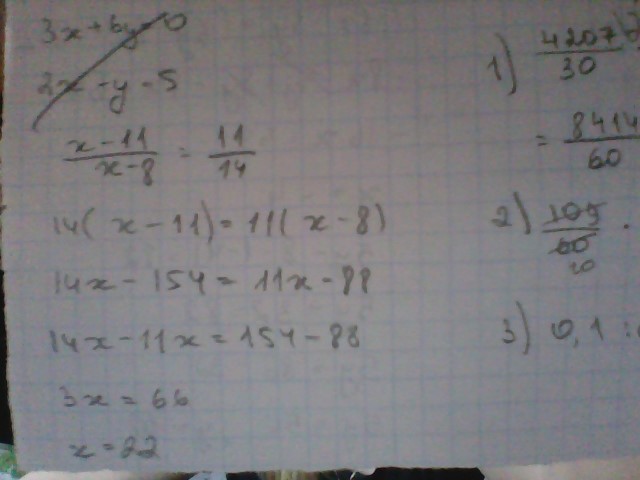 3x+6y=0
2x-y-5
x-11 / x-8 = 11 / 14
14(x-11)=11(x-8)
14x-154=11x-88
14x-11x=154-88
3x=66
x=22
1) 4207 / 30
= 8414 / 60
2) 105 / 60 .
10
3) 0,1 :